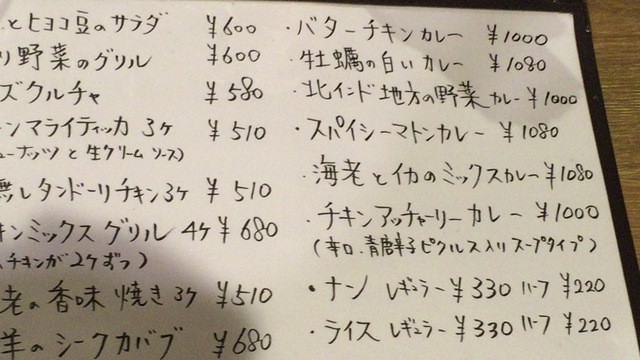 とヒヨコ豆のサラダ ¥600
野菜のグリル ¥600
ズクルチャ ¥580
ンマライティッカ 3ヶ ¥510
ューナッツと生クリームソース)
レタンドーリチキン3ヶ ¥510
ンミックスグリル 4ヶ ¥680
チキンが2ヶずつ)
老の香味焼き3ヶ ¥510
羊のシークカバブ ¥680
・バターチキンカレー ¥1000
・牡蠣の白いカレー ¥1080
・北インド地方の野菜カレー ¥1000
・スパイシーマトンカレー ¥1080
・海老とイカのミックスカレー ¥1080
・チキンアッチャーリーカレー ¥1000
(辛口.青唐辛子ピクルス入りスープタイプ)
・ナン レギュラー ¥330 ハーフ ¥220
・ライス レギュラー ¥330 ハーフ ¥220